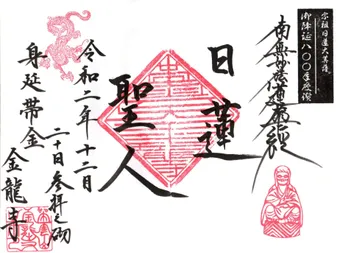 宗祖日蓮大菩薩
御降誕八〇〇年慶讃
南無妙法蓮華経
日蓮
聖人
令和二年十二月
二十日参拝之砌
身延帯金
金龍寺